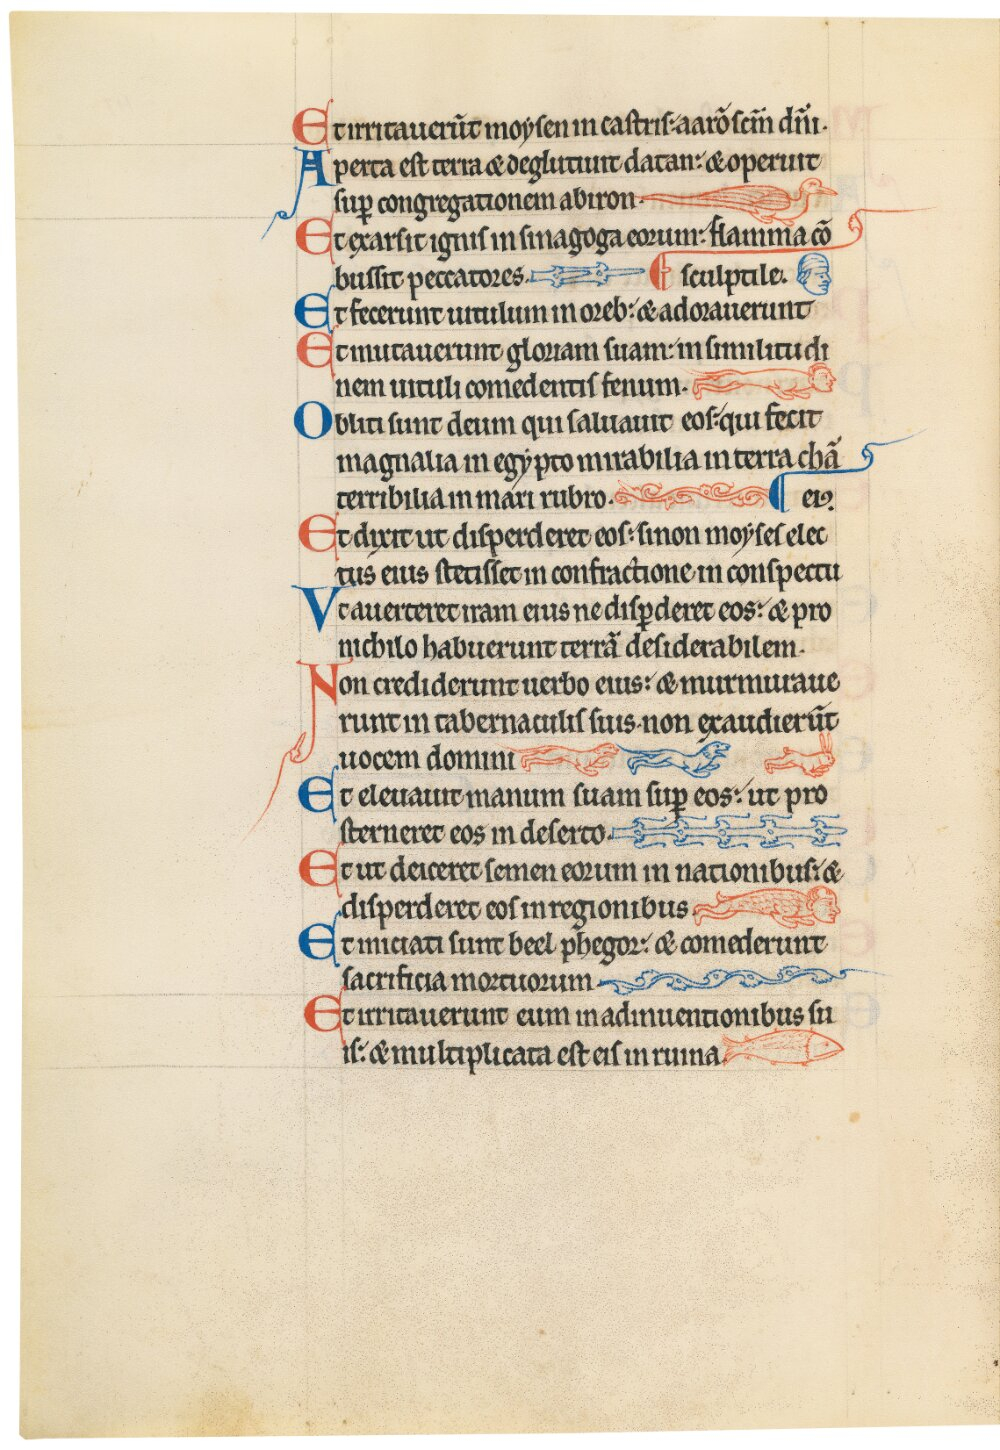 Et irritauerūt moysen in castris: aarō scm̄ dn̄i.
Aperta est terra & deglutiuit datan: & operuit
sup̱ congregationem abiron.
Et exarsit ignis in sinagoga eorum: flamma cō
bussit peccatores. sculptile.
Et fecerunt uitulum in oreb: & adorauerunt
Et mutauerunt gloriam suam: in similitudi
nem uituli comedentis fenum.
Obliti sunt deum qui saluauit eos: qui fecit
magnalia in egypto mirabilia in terra chā
terribilia in mari rubro.
Et dixit ut disperderet eos: si non moyses elec
tus eius stetisset in confractione in conspectu
Vt auerteret iram eius ne disp̱deret eos: & pro
nichilo habuerunt terrā desiderabilem. eiꝰ.
Non crediderunt uerbo eius: & murmuraue
runt in tabernaculis suis. non exaudierūt
uocem domini
Et eleuauit manum suam sup̱ eos: ut pro
sterneret eos in deserto.
Et ut deiceret semen eorum in nationibus: &
disperderet eos in regionibus
Et iniciati sunt beel phegor: & comederunt
sacrificia mortuorum
Et irritauerunt eum in adinuentionibus su
is: & multiplicata est eis in ruina.